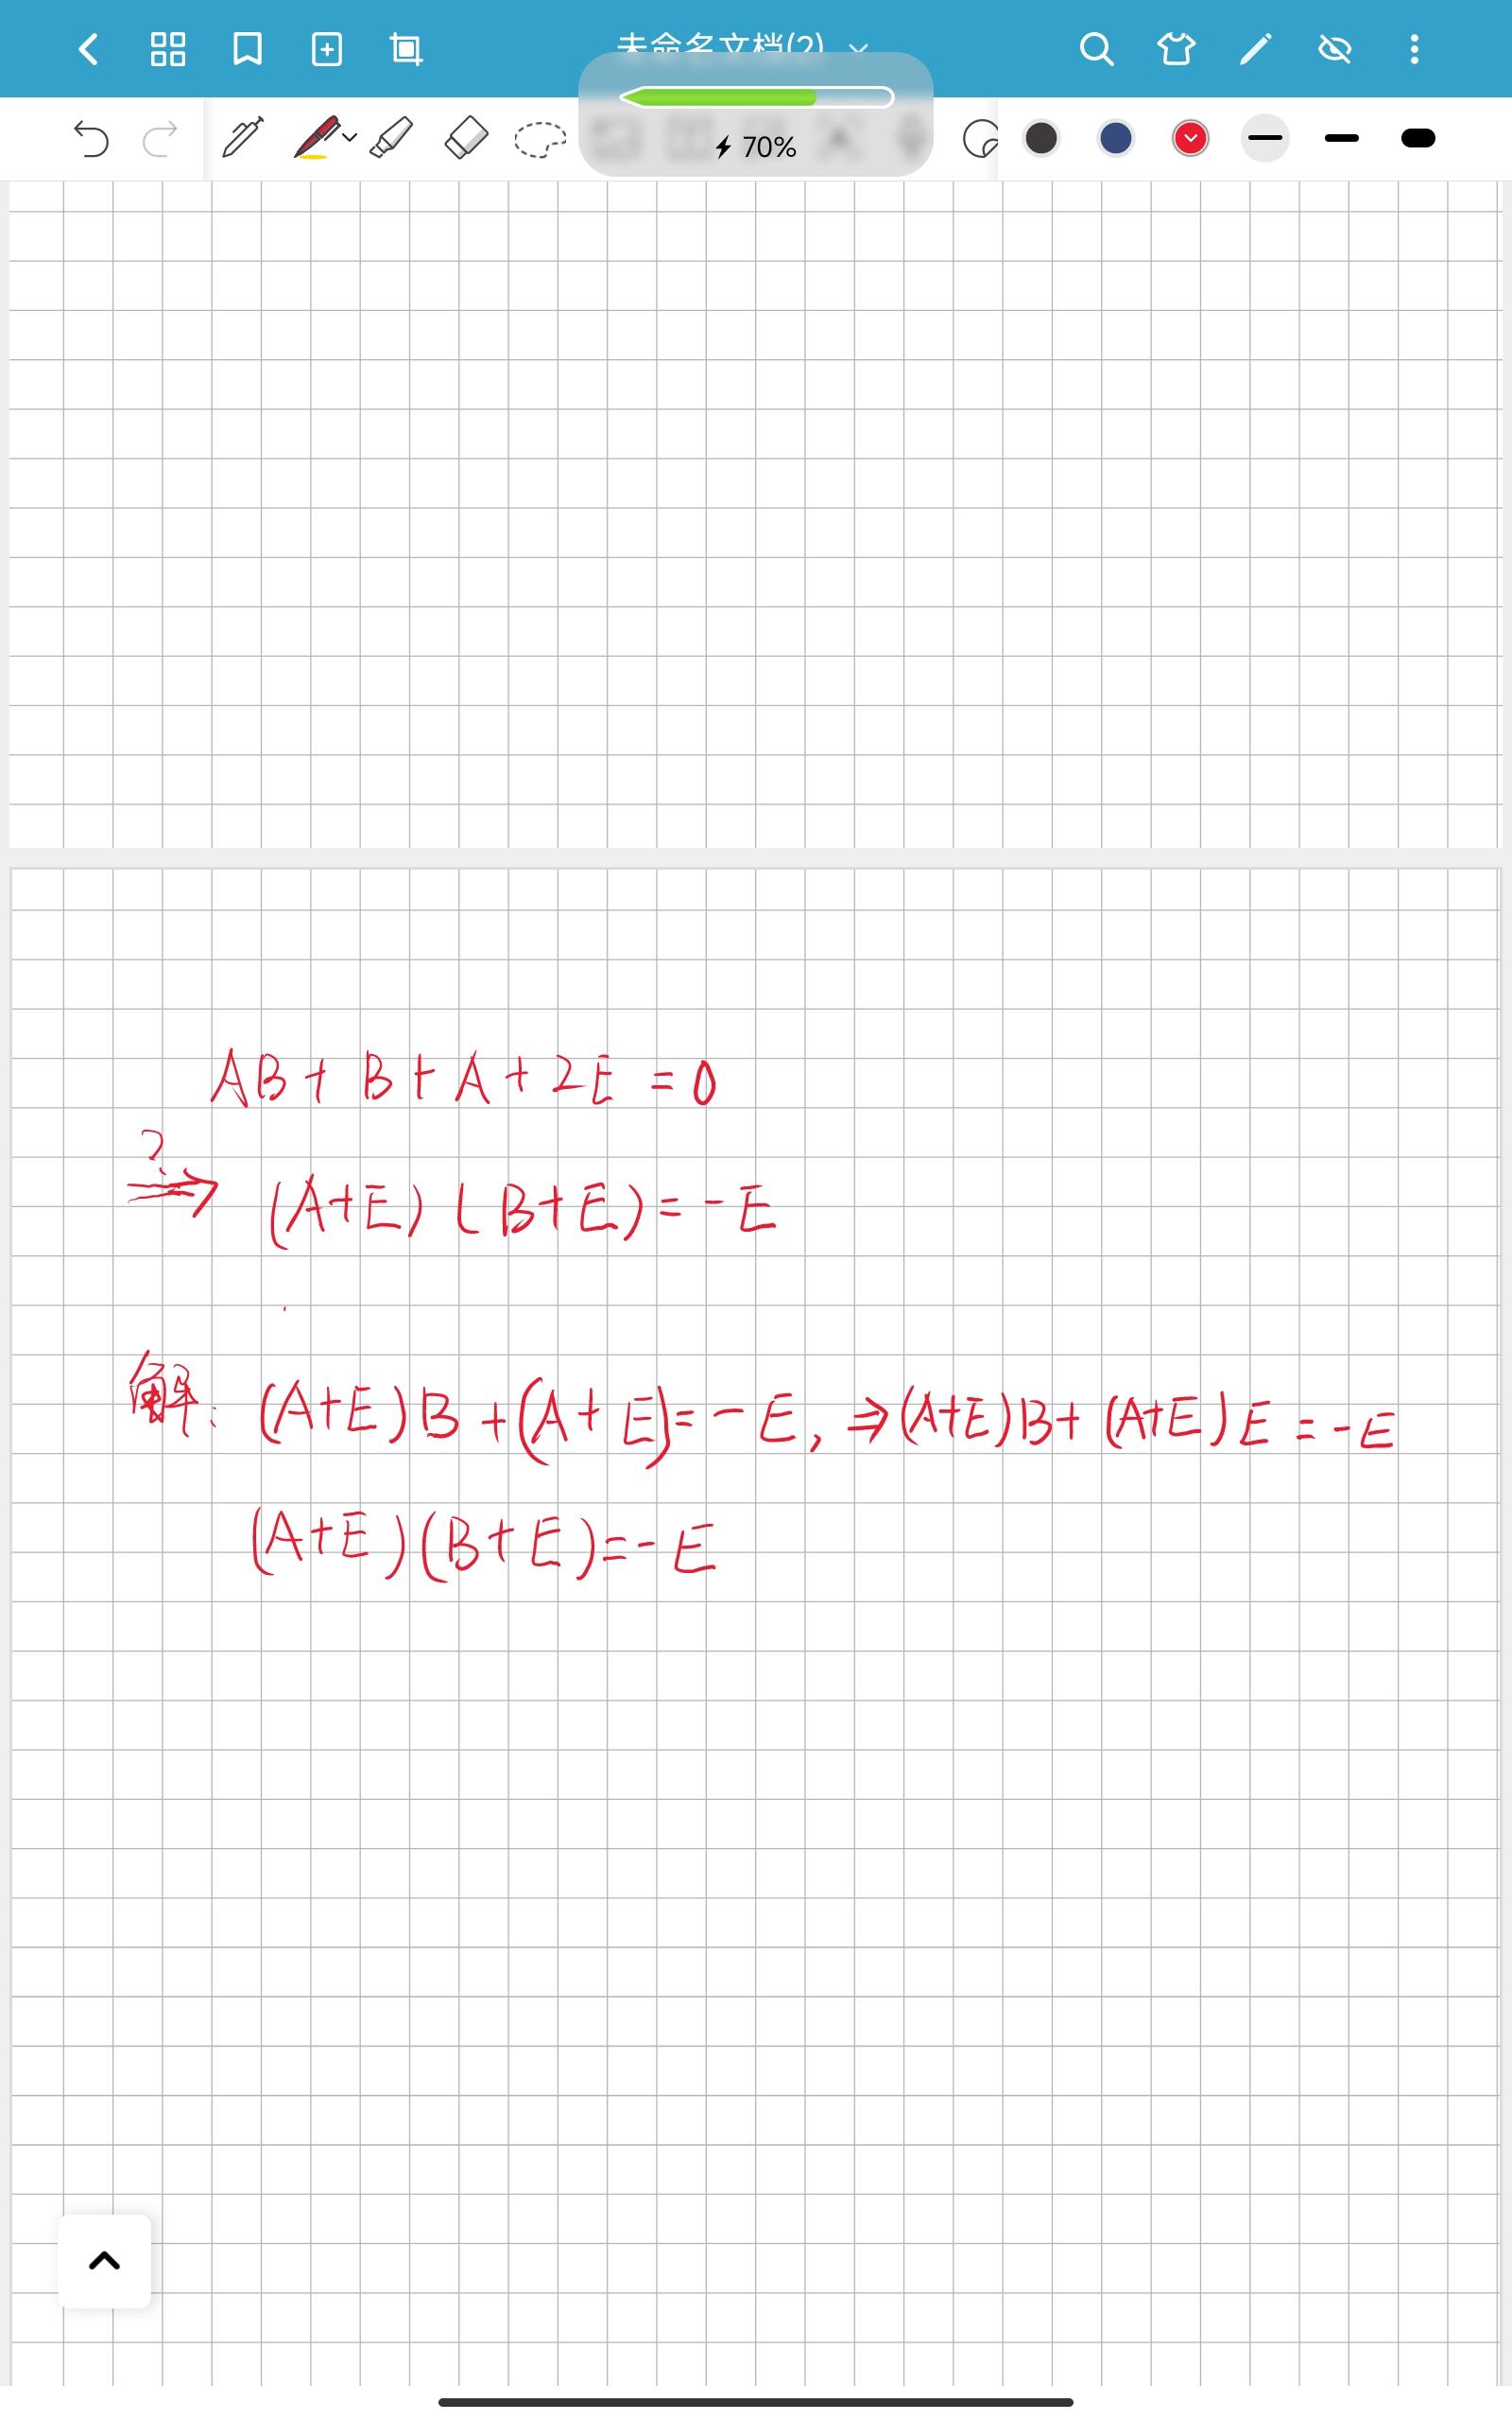 未命名文档(2)
70%
AB+B+A+2E=0
?
⇒ (A+E)(B+E)=-E
解: (A+E)B+(A+E)=-E, ⇒(A+E)B+(A+E)E=-E
(A+E)(B+E)=-E